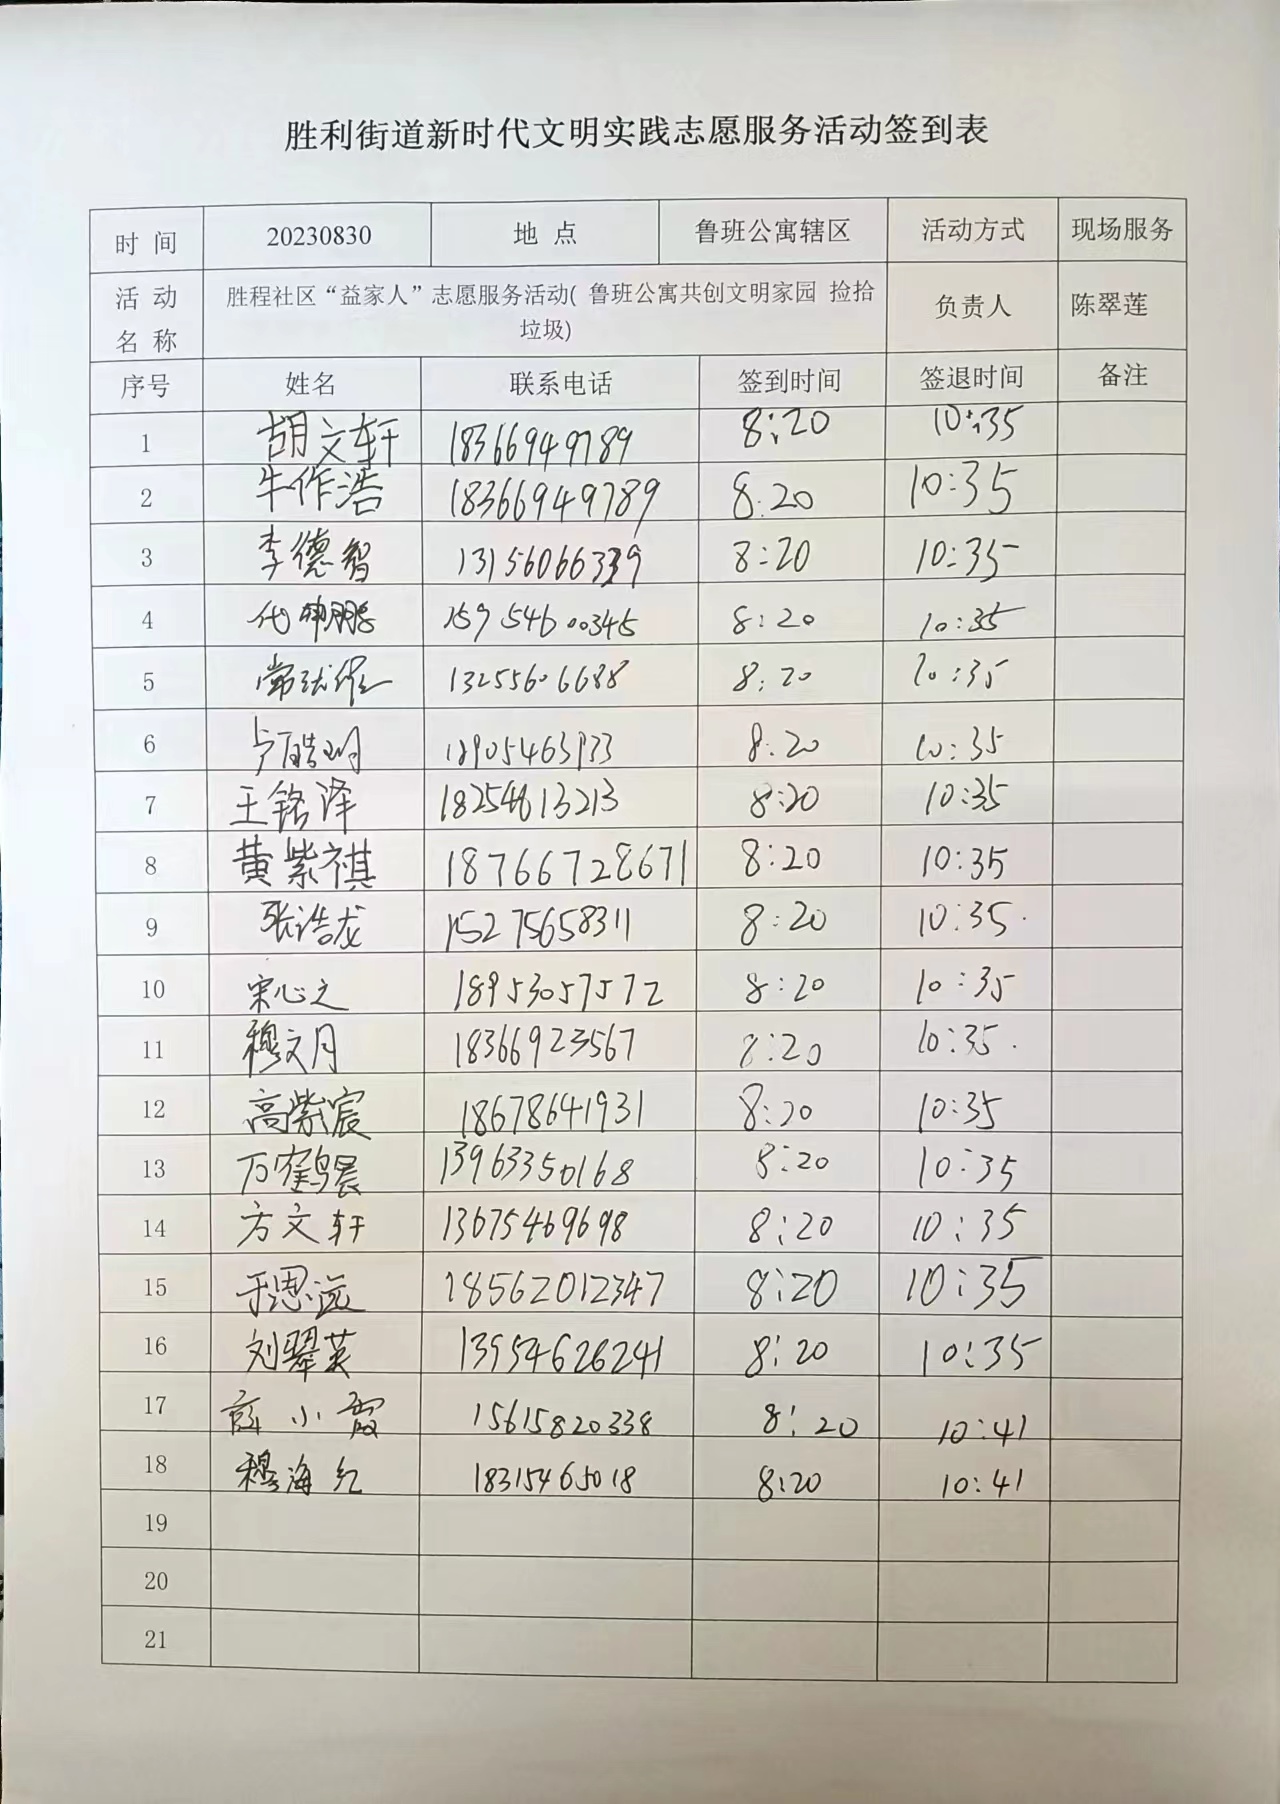 胜利街道新时代文明实践志愿服务活动签到表
时 间 20230830 地 点 鲁班公寓辖区 活动方式 现场服务
活 动 名 称 胜程社区“益家人”志愿服务活动( 鲁班公寓共创文明家园 捡拾垃圾) 负责人 陈翠莲
序号 姓名 联系电话 签到时间 签退时间 备注
1 胡文轩 18366949789 8:20 10:35
2 牛作浩 18366949789 8:20 10:35
3 李德智 13156066339 8:20 10:35
4 代申鹏 15954600345 8:20 10:35
5 13255606688 8:20 10:35
6 8:20 10:35
7 王铭泽 18254613213 8:20 10:35
8 黄紫祺 18766728671 8:20 10:35
9 张浩龙 15275658311 8:20 10:35
10 宋心之 18953057572 8:20 10:35
11 穆文月 18366923567 8:20 10:35
12 高紫宸 18678641931 8:20 10:35
13 万鹤晨 13963350168 8:20 10:35
14 方文轩 13675469698 8:20 10:35
15 于恩远 18562012347 8:20 10:35
16 刘翠英 13954626241 8:20 10:35
17 薛小霞 15615820338 8:20 10:41
18 穆海红 18315465018 8:20 10:41
19
20
21